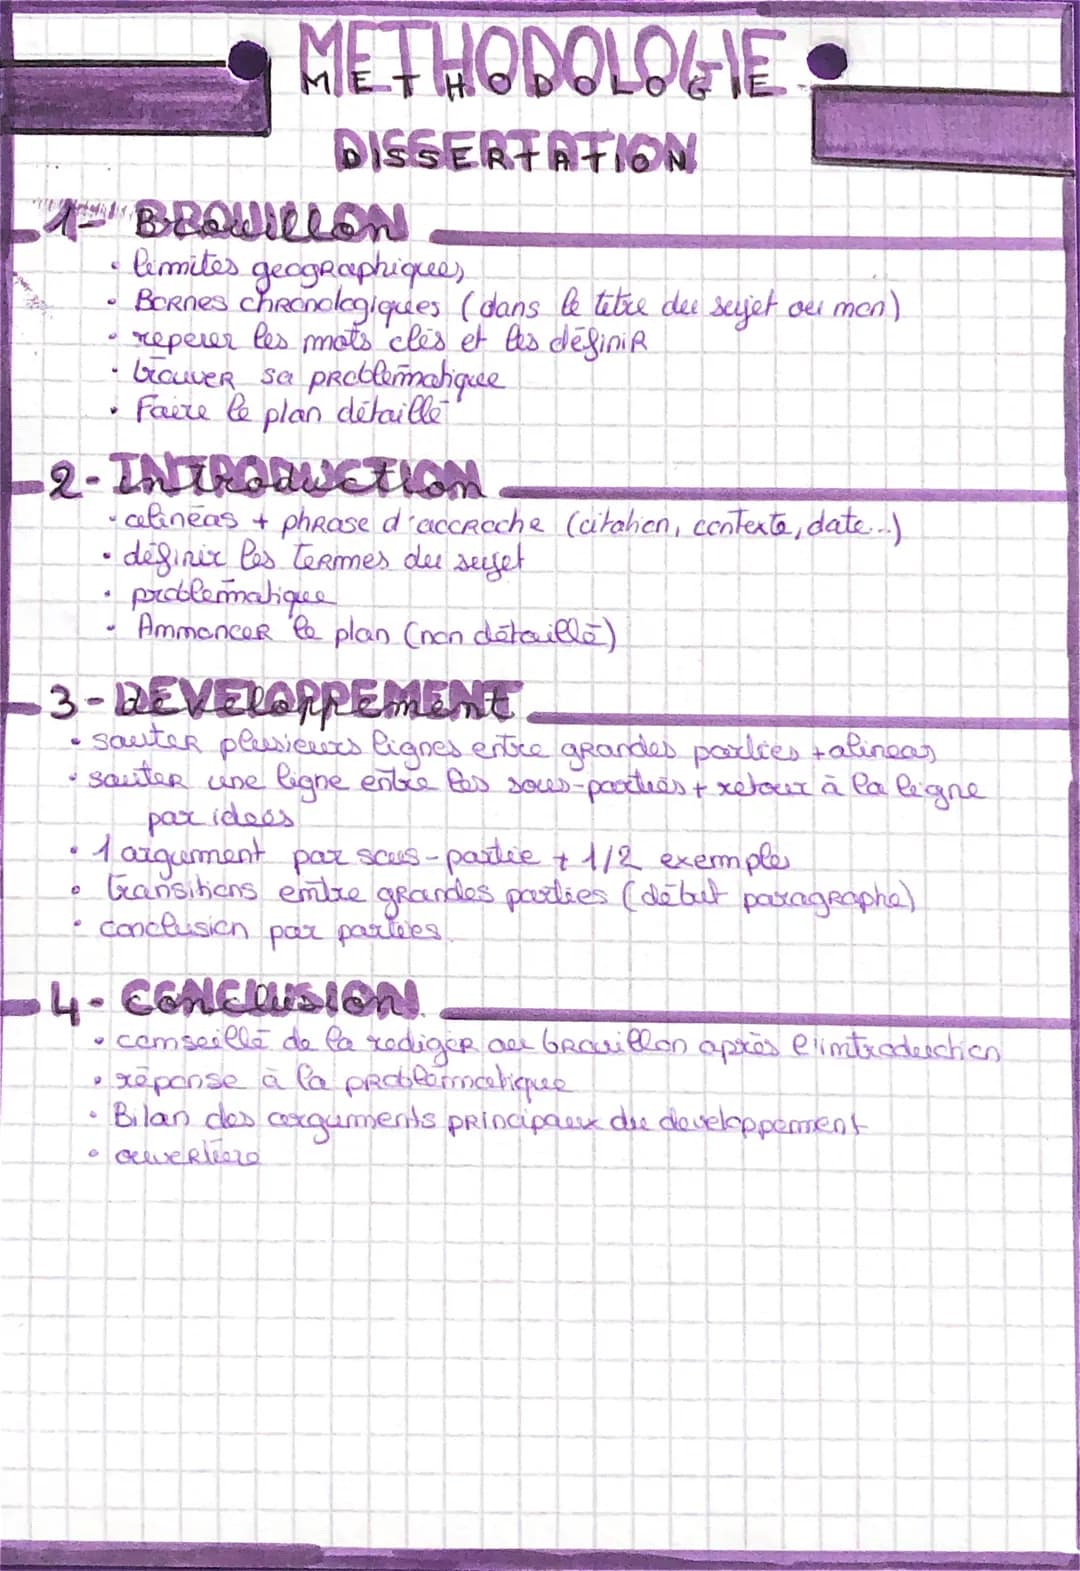 METHODOLOGIE
METHODOLOGIE
DISSERTATION
1- BROUILLON
• limites geographiques
• Bornes chronologiques (dans le titre du sujet ou non)
• reperer les mots clés et les définir
• trouver sa problematique
• Faire le plan détaillé
2- INTRODUCTION
• alinéas + phrase d'accroche (citation, contexte, date...)
• définir les termes du sujet
• problematique
• Annoncer le plan (non détaillé)
3- DEVELOPPEMENT
• sauter plusieurs lignes entre grandes parties + alineas
• sauter une ligne entre les sous-parties + retour à la ligne
par idees
• 1 argument par sous-partie + 1/2 exemples
• transitions entre grandes parties (début paragraphe)
• conclusion par parties.
4- CONCLUSION.
• conseillé de la rediger au brouillon après l'introduction
• réponse à la problématique
• Bilan des arguments principaux du developpement
• ouverture